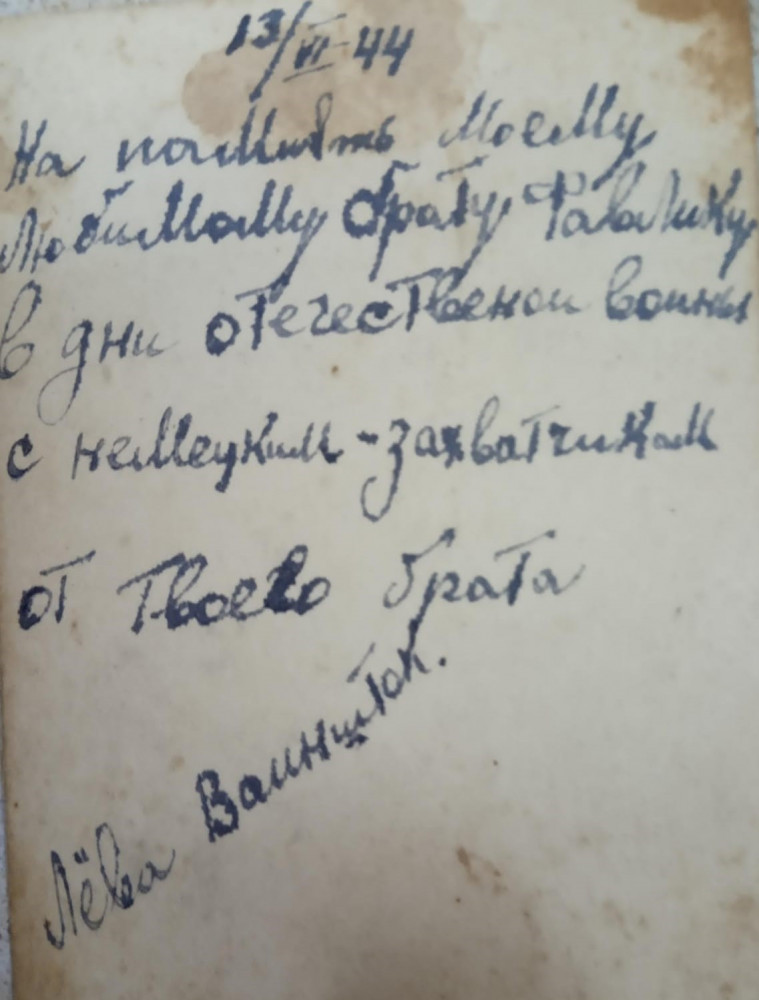 13/VI-44
На память моему
любимому брату Фавлику
в дни отечественои воины
с немецким-захватчикам
от твоего брата
Лёва Ваиншток.